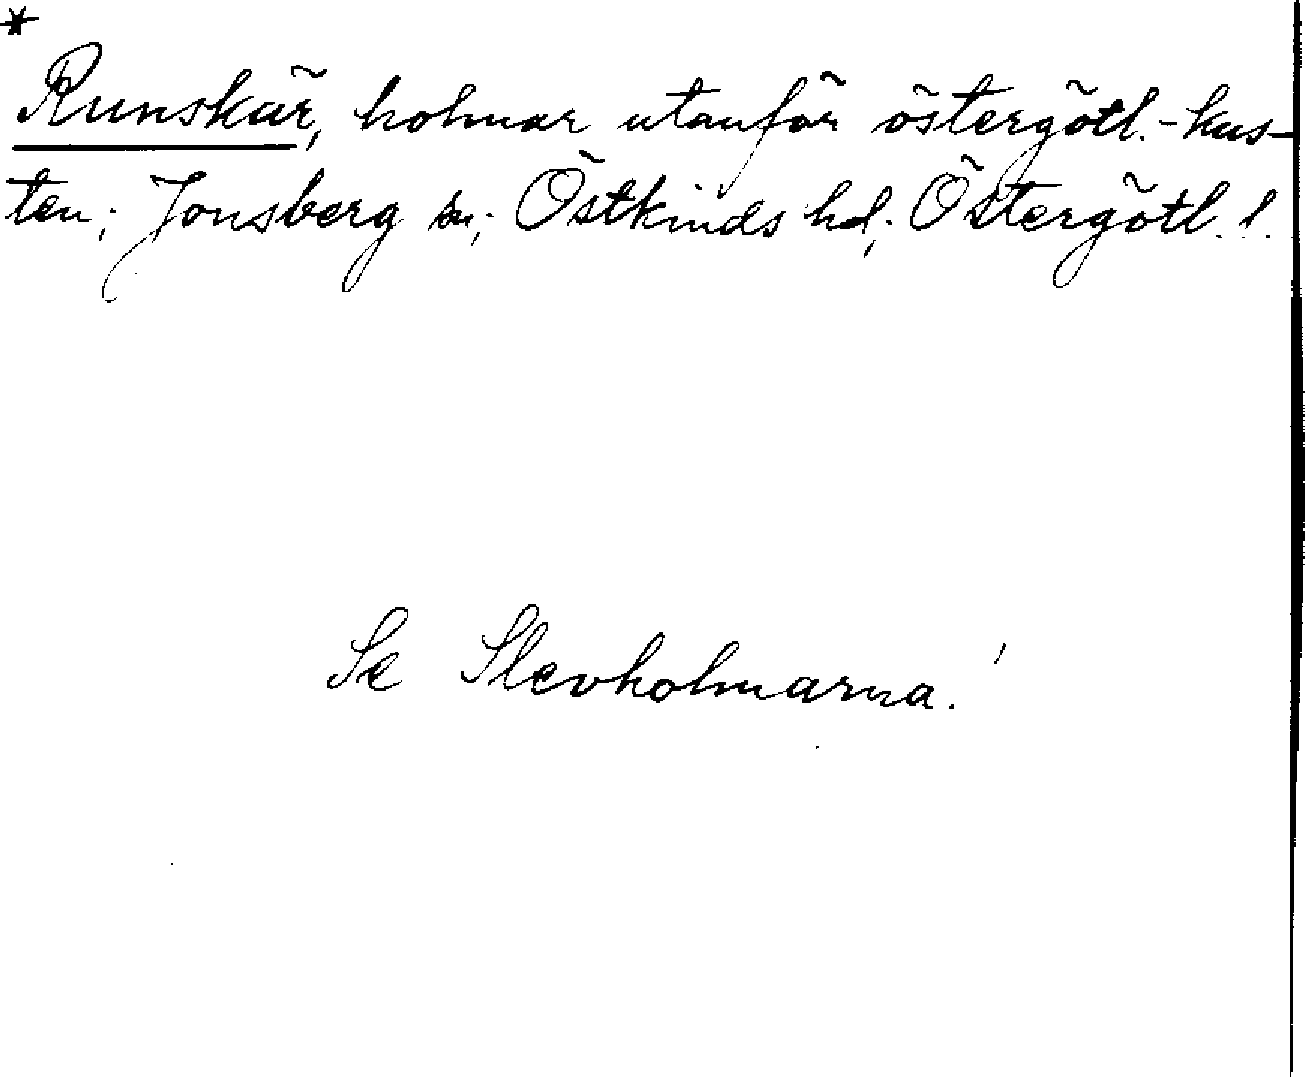 *
Runskär, holmar utanför östergötl.-kus-
ten; Jonsberg sn; Östkinds hd; Östergötl. l.
Se Slevholmarna.